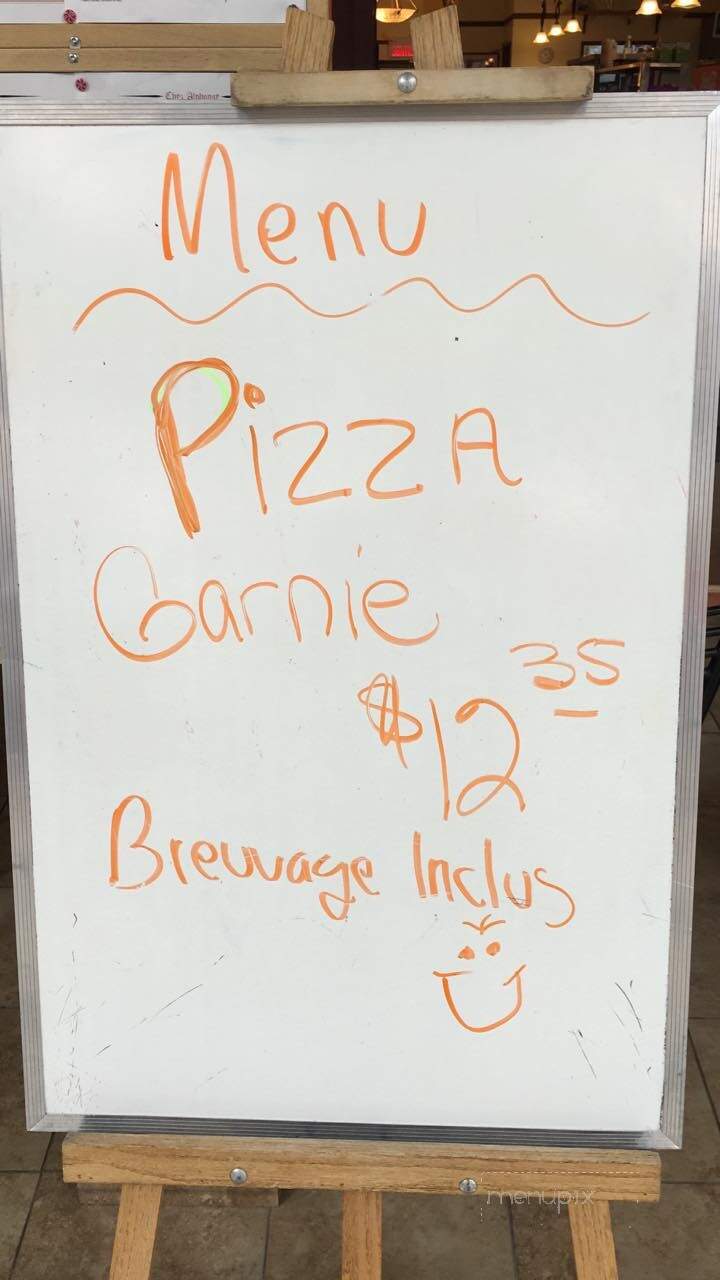 Chez Alphonse
Menu
Pizza
Garnie
$12 35
Breuvage Inclus
menupix